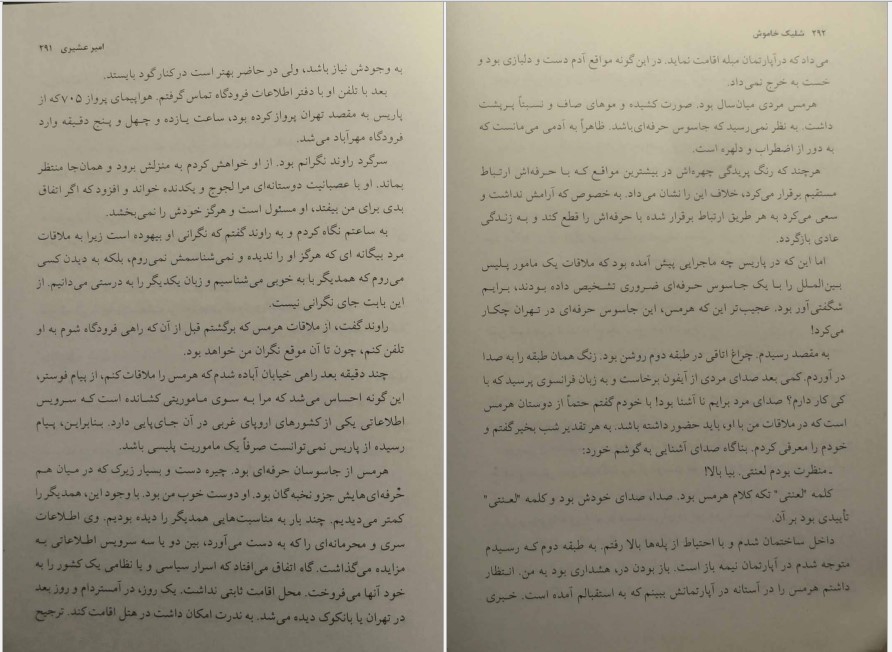 امیر عشیری ۲۹۱
به وجودش نیاز باشد، ولی در حاضر بهتر است در کنار گود بایستد.
بعد با تلفن او با دفتر اطلاعات فرودگاه تماس گرفتم. هواپیمای پرواز ۷۰۵که از
پاریس به مقصد تهران پرواز کرده بود، ساعت یازده و چهل و پنج دقیقه وارد
فرودگاه مهرآباد می‌شد.
سرگرد راوند نگرانم بود. از او خواهش کردم به منزلش برود و همان‌جا منتظر
بماند. او با عصبانیت دوستانه‌ای مرا لجوج و یکدنده خواند و افزود که اگر اتفاق
بدی برای من بیفتد، او مسئول است و هرگز خودش را نمی‌بخشد.
به ساعتم نگاه کردم و به راوند گفتم که نگرانی او بیهوده است زیرا به ملاقات
مرد بیگانه ای که هرگز او را ندیده و نمی‌شناسمش نمی‌روم، بلکه به دیدن کسی
می‌روم که همدیگر با به خوبی می‌شناسیم و زبان یکدیگر را به درستی می‌دانیم. از
این بابت جای نگرانی نیست.
راوند گفت، از ملاقات هرمس که برگشتم قبل از آن که راهی فرودگاه شوم به او
تلفن کنم، چون تا آن موقع نگران من خواهد بود.
چند دقیقه بعد راهی خیابان آباده شدم که هرمس را ملاقات کنم، از پیام فوستر،
این گونه احساس می‌شد که مرا به سوی ماموریتی کشانده است که سرویس
اطلاعاتی یکی از کشورهای اروپای غربی در آن جای‌پایی دارد. بنابراین، پیام
رسیده از پاریس نمی‌توانست صرفاً یک ماموریت پلیسی باشد.
هرمس از جاسوسان حرفه‌ای بود. چیره دست و بسیار زیرک که در میان هم
حُرفه‌ای‌هایش جزو نخبه‌گان بود. او دوست خوب من بود. با وجود این، همدیگر را
کمتر می‌دیدیم. چند بار به مناسبت‌هایی همدیگر را دیده بودیم. وی اطلاعات
سری و محرمانه‌ای را که به دست می‌آورد، بین دو یا سه سرویس اطلاعاتی به
مزایده می‌گذاشت. گاه اتفاق می‌افتاد که اسرار سیاسی و یا نظامی یک کشور را به
خود آنها می‌فروخت. محل اقامت ثابتی نداشت. یک روز، در آمستردام و روز بعد
در تهران یا بانکوک دیده می‌شد. به ندرت امکان داشت در هتل اقامت کند. ترجیح
۲۹۲ شلیک خاموش
می‌داد که در آپارتمان مبله اقامت نماید. در این گونه مواقع آدم دست و دلبازی بود و
خست به خرج نمی‌داد.
هرمس مردی میان‌سال بود. صورت کشیده و موهای صاف و نسبتاً پرپشت
داشت. به نظر نمی‌رسید که جاسوس حرفه‌ای‌باشد. ظاهراً به آدمی می‌مانست که
به دور از اضطراب و دلهره است.
هرچند که رنگ پریدگی چهره‌اش در بیشترین مواقع که با حرفه‌اش ارتباط
مستقیم برقرار می‌کرد، خلاف این را نشان می‌داد. به خصوص که آرامش نداشت و
سعی می‌کرد به هر طریق ارتباط برقرار شده با حرفه‌اش را قطع کند و به زندگی
عادی بازگردد.
اما این که در پاریس چه ماجرایی پیش آمده بود که ملاقات یک مامور پلیس
بین‌الملل را با یک جاسوس حرفه‌ای ضروری تشخیص داده بودند، برایم
شگفتی‌آور بود. عجیب‌تر این که هرمس، این جاسوس حرفه‌ای در تهران چکار
می‌کرد!
به مقصد رسیدم. چراغ اتاقی در طبقه دوم روشن بود. زنگ همان طبقه را به صدا
در آوردم. کمی بعد صدای مردی از آیفون برخاست و به زبان فرانسوی پرسید که با
کی کار دارم؟ صدای مرد برایم نا آشنا بود! با خودم گفتم حتماً از دوستان هرمس
است که در ملاقات من با او، باید حضور داشته باشد. به هر تقدیر شب بخیر گفتم و
خودم را معرفی کردم. بناگاه صدای آشنایی به گوشم خورد:
- منتظرت بودم لعنتی. بیا بالا!
کلمه "لعنتی" تکه کلام هرمس بود. صدا، صدای خودش بود و کلمه "لعنتی"
تأییدی بود بر آن.
داخل ساختمان شدم و با احتیاط از پله‌ها بالا رفتم. به طبقه دوم که رسیدم
متوجه شدم در آپارتمان نیمه باز است. باز بودن در، هشداری بود به من. انتظار
داشتم هرمس را در آستانه در آپارتمانش ببینم که به استقبالم آمده است. خبری